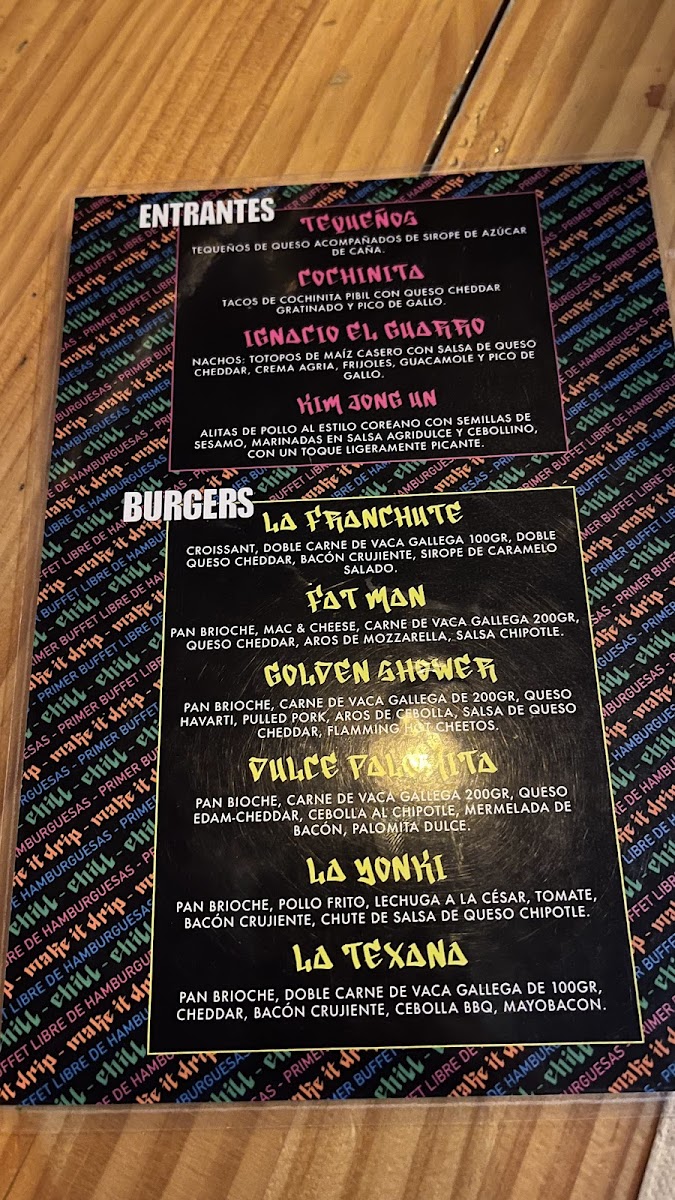 ENTRANTES
TEQUEÑOS
TEQUEÑOS DE QUESO ACOMPAÑADOS DE SIROPE DE AZÚCAR
DE CAÑA.
COCHINITA
TACOS DE COCHINITA PIBIL CON QUESO CHEDDAR
GRATINADO Y PICO DE GALLO.
IGNACIO EL GUARRO
NACHOS: TOTOPOS DE MAÍZ CASERO CON SALSA DE QUESO
CHEDDAR, CREMA AGRIA, FRIJOLES, GUACAMOLE Y PICO DE
GALLO.
KIM JONG UN
ALITAS DE POLLO AL ESTILO COREANO CON SEMILLAS DE
SESAMO, MARINADAS EN SALSA AGRIDULCE Y CEBOLLINO,
CON UN TOQUE LIGERAMENTE PICANTE.
BURGERS
LA FRANCHUTE
CROISSANT, DOBLE CARNE DE VACA GALLEGA 100GR, DOBLE
QUESO CHEDDAR, BACÓN CRUJIENTE, SIROPE DE CARAMELO
SALADO.
FAT MAN
PAN BRIOCHE, MAC & CHEESE, CARNE DE VACA GALLEGA 200GR,
QUESO CHEDDAR, AROS DE MOZZARELLA, SALSA CHIPOTLE.
GOLDEN SHOWER
PAN BRIOCHE, CARNE DE VACA GALLEGA DE 200GR, QUESO
HAVARTI, PULLED PORK, AROS DE CEBOLLA, SALSA DE QUESO
CHEDDAR, FLAMMING HOT CHEETOS.
DULCE PALOMITA
PAN BIOCHE, CARNE DE VACA GALLEGA 200GR, QUESO
EDAM-CHEDDAR, CEBOLLA AL CHIPOTLE, MERMELADA DE
BACÓN, PALOMITA DULCE.
LA YONKI
PAN BRIOCHE, POLLO FRITO, LECHUGA A LA CÉSAR, TOMATE,
BACÓN CRUJIENTE, CHUTE DE SALSA DE QUESO CHIPOTLE.
LA TEXANA
PAN BRIOCHE, DOBLE CARNE DE VACA GALLEGA DE 100GR,
CHEDDAR, BACÓN CRUJIENTE, CEBOLLA BBQ, MAYOBACON.
PRIMER BUFFET LIBRE DE HAMBURGUESAS - make it drip - chill